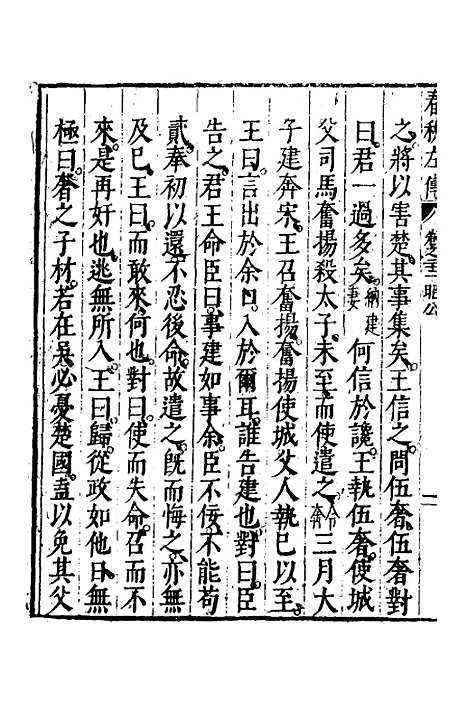 春秋左傳 昭公
之將以害楚其事集矣王信之問伍奢伍奢對
曰君一過多矣納建妻何信於讒王執伍奢使城
父司馬奮揚殺太子未至而使遣之令奔三月大
子建奔宋王召奮揚奮揚使城父人執已以至
王曰言出於余口入於爾耳誰告建也對曰臣
告之君王命臣曰事建如事余臣不佞不能苟
貳奉初以還不忍後命故遣之旣而悔之亦無
及已王曰而敢來何也對曰使而失命召而不
來是再奸也逃無所入王曰歸從政如他日無
極曰奢之子材若在吳必憂楚國盍以免其父